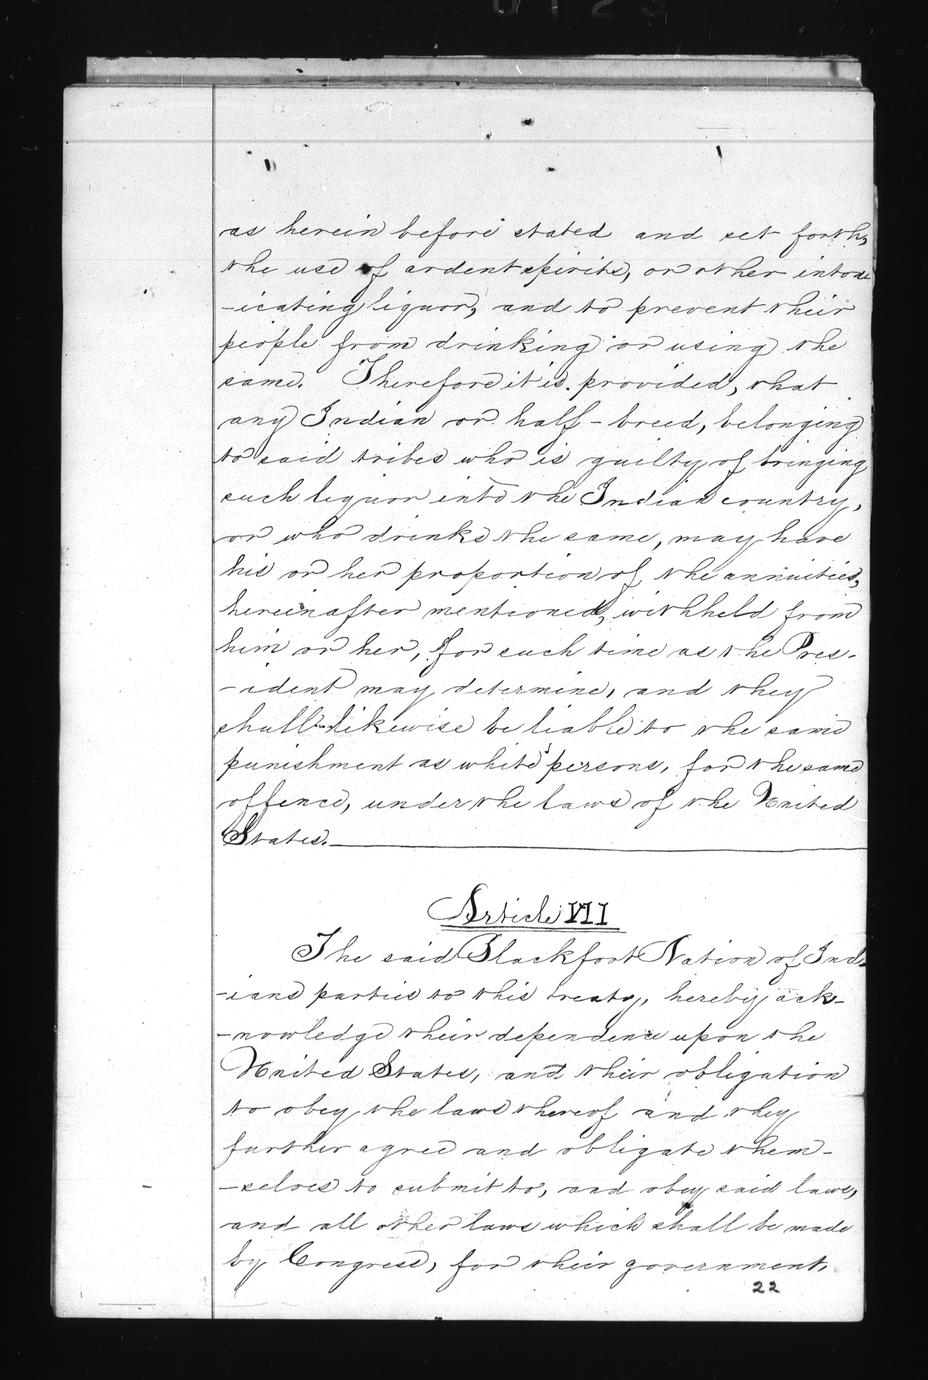 as herein before stated and set forth,
the use of ardent spirits, or other intox
-icating liquor, and to prevent their
people from drinking or using the
same. Therefore it is provided, that
any Indian or half-breed, belonging
to said tribes who is guilty of bringing
such liquor into the Indian country,
or who drinks the same, may have
his or her proportion of the annuities,
hereinafter mentioned, withheld from
him or her, for such time as the Pres-
-ident may determine, and they
shall likewise be liable to the same
punishment as white persons, for the same
offence, under the laws of the United
States.
Article VII
The said Blackfoot Nation of Indi-
-ians parties to this treaty, hereby ack-
-nowledge their dependence upon the
United States, and their obligation
to obey the laws thereof and they
further agree and obligate them-
-selves to submit to, and obey said laws,
and all other laws which shall be made
by Congress, for their government,
22